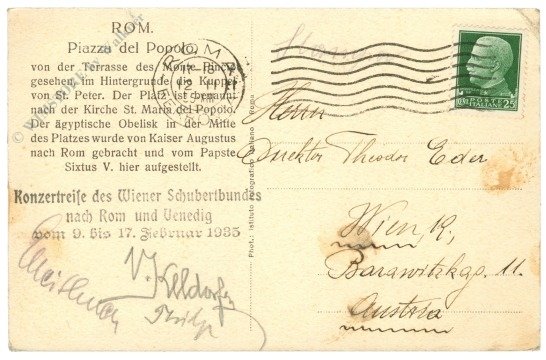 ROM.
Piazza del Popolo,
von der Terrasse des Monte Pincio
gesehen, im Hintergrunde die Kuppel
von St. Peter. Der Platz ist benannt
nach der Kirche St. Maria del Popolo.
Der ägyptische Obelisk in der Mitte
des Platzes wurde von Kaiser Augustus
nach Rom gebracht und vom Papste
Sixtus V. hier aufgestellt.
Konzertreise des Wiener Schubertbundes
nach Rom und Venedig
vom 9. bis 17. Februar 1935
V. Keldorfer
ROMA
POSTE
25
Herrn
Direktor Theodor Eder
Wien
Barawitzkag. 11
Austria